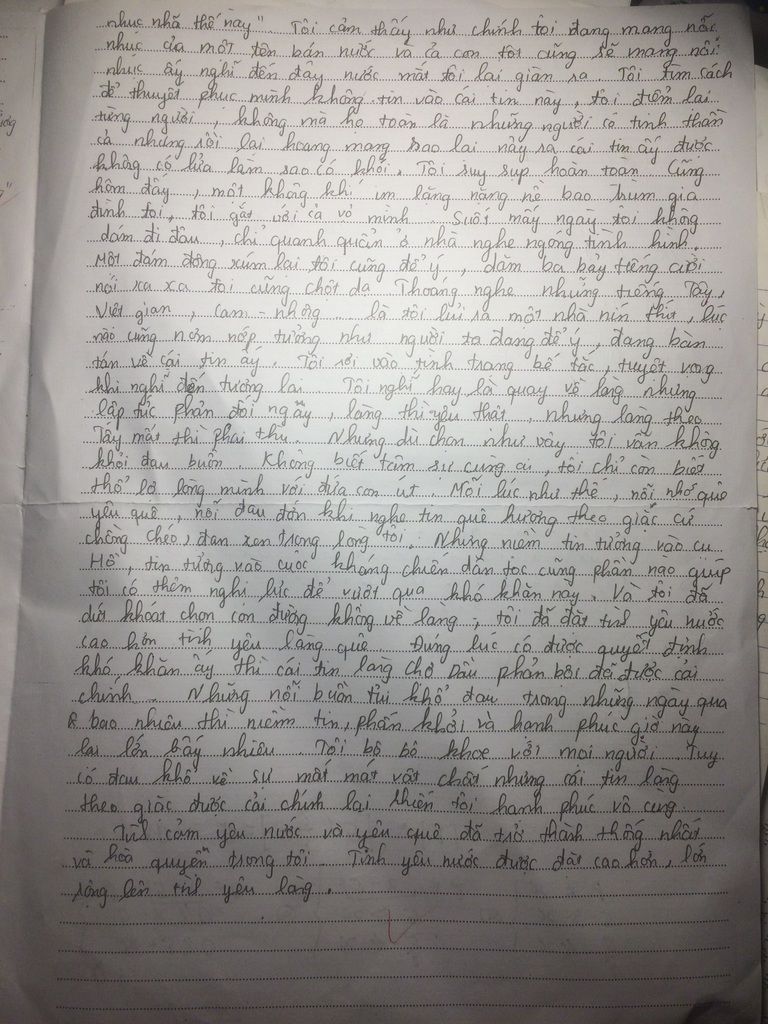 nhục nhã thế này". Tôi cảm thấy như chính tôi đang mang nỗi
nhục của một tên bán nước và cả con tôi cũng sẽ mang nỗi
nhục ấy nghĩ đến đây nước mắt tôi lại giàn ra. Tôi tìm cách
để thuyết phục mình không tin vào cái tin này, tôi điểm lại
từng người, không mà họ toàn là những người có tinh thần
cả nhưng rồi lại hoang mang sao lại nảy ra cái tin ấy được
không có lửa làm sao có khói. Tôi suy sụp hoàn toàn. Cũng
hôm đấy, một không khí im lặng nặng nề bao trùm gia
đình tôi, tôi gắt với cả vợ mình. Suốt mấy ngày tôi không
dám đi đâu, chỉ quanh quẩn ở nhà nghe ngóng tình hình.
Một đám đông xúm lại tôi cũng để ý, dăm ba bảy tiếng cười
nói xa xa tôi cũng chột dạ. Thoang nghe những tiếng Tây,
Việt gian, cam - nhông... là tôi lủi ra một nhà nín thít, lúc
nào cũng nơm nớp tưởng như người ta đang để ý, đang bàn
tán về cái tin ấy. Tôi rơi vào tình trạng bế tắc, tuyệt vọng
khi nghĩ đến tương lai. Tôi nghĩ hay là quay về làng nhưng
lập tức phản đối ngay, làng thì yêu thật, nhưng làng theo
Tây mất thì phải thù. Nhưng dù chọn như vậy tôi vẫn không
khỏi đau buồn. Không biết tâm sự cùng ai, tôi chỉ còn biết
thổ lộ lòng mình với đứa con út. Mỗi lúc như thế, nỗi nhớ quê
yêu quê, nỗi đau đớn khi nghe tin quê hương theo giặc cứ
chồng chéo, đan xen trong lòng tôi. Nhưng niềm tin tưởng vào cụ
Hồ, tin tưởng vào cuộc kháng chiến dân tộc cũng phần nào giúp
tôi có thêm nghị lực để vượt qua khó khăn này. Và tôi đã
dứt khoát chọn con đường không về làng, tôi đã đặt tình yêu nước
cao hơn tình yêu làng quê. Đúng lúc có được quyết định
khó khăn ấy thì cái tin làng Chợ Dầu phản bội đã được cải
chính. Những nỗi buồn tủi khổ đau trong những ngày qua
bao nhiêu thì niềm tin, phấn khởi và hạnh phúc giờ này
lại lớn bấy nhiêu. Tôi bô bô khoe với mọi người. Tuy
có đau khổ về sự mất mát vật chất nhưng cái tin làng
theo giặc được cải chính lại khiến tôi hạnh phúc vô cùng.
Tình cảm yêu nước và yêu quê đã trở thành thống nhất
và hòa quyện trong tôi. Tình yêu nước được đặt cao hơn, lớn
rộng lên tình yêu làng.